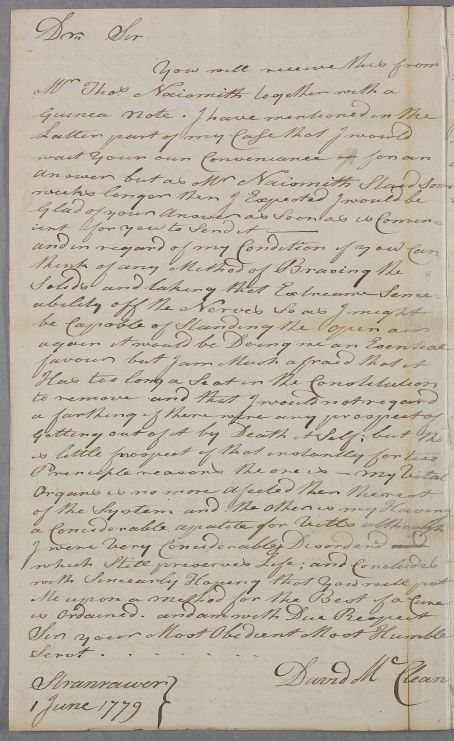 Dr Sir
You will receive this from
Mr Thos Naismith together with a
Guinea note. I have mentioned in the
Latter part of my Case that I would
wait your own Conveniance for an
answer but as Mr Naismith Staid Som
weeks longer then I Expected I would be
Glad of your Answer as Soon as is Conven-
ient for you to Send it —
and in regard of my Condition if you Can
think of any Method of Braceing the
Solids and taking that Extreame Sence
ability off the Nerves So as I might
be Capable of Standing the open air
again it would be Doing me an Esential
favour but I am Much afraid that it
Has too long a Seat in the Constitution
to remove and that I would not regard
a farthing if there were any prospect of
Getting out of it by Death it Self; but the
is little prospect of that instantly for two
Principle reasons the one is my Vital
Organs is no more afected then the rest
of the System and the other is my Having
a Considerable apatite for Vitls although
I were Very Considerably Disorderd
which Still preserves Life; and Concludes
with Sincearly Hoping that you will put
Me upon a method for the Best if a Cure
is Ordained. and am with Due Respect
Sir your Most Obedient Most Humble
Servt.
Stranrawer
1 June 1779
David Mc Clean